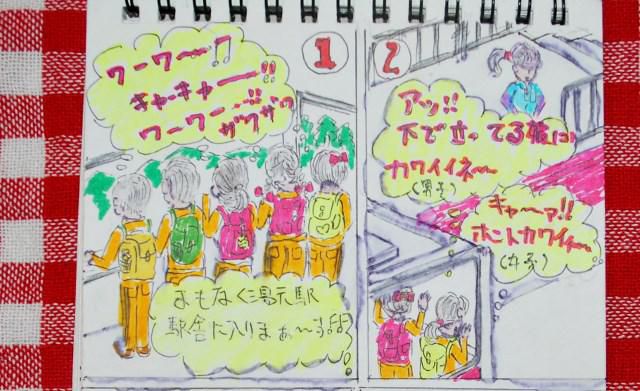 1
ワーワー〜♫
キャーキャー!!
ワーワー…!!
ザワザワ
まもなく湯元駅
駅舎に入りまぁ〜す
2
アッ!!
下で立ってる
カワイイネ〜
(男子)
キャ〜ァ!!
ホントカワイイ〜
(女子)